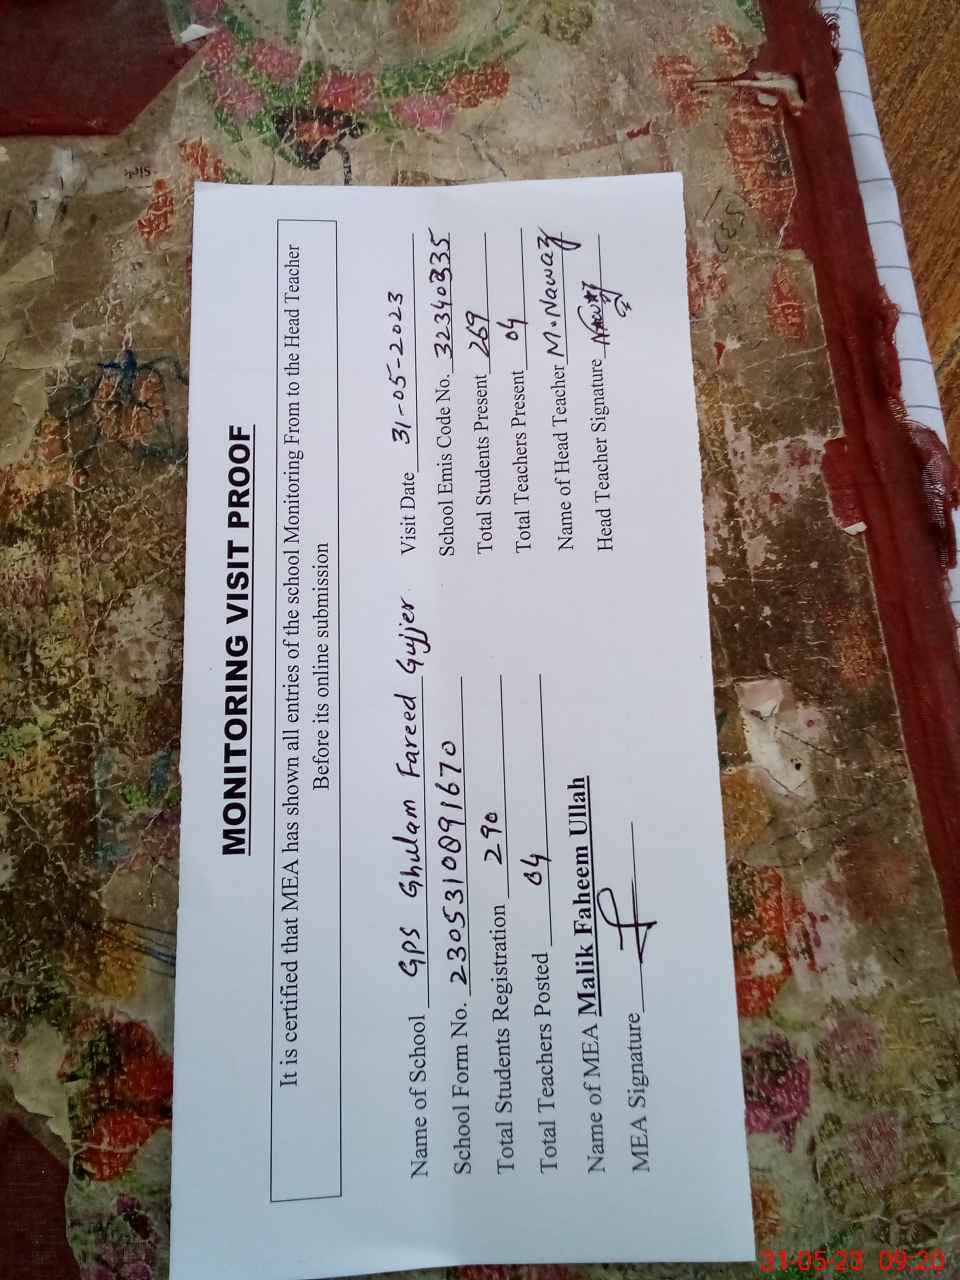 MONITORING VISIT PROOF
It is certified that MEA has shown all entries of the school Monitoring From to the Head Teacher
Before its online submission
Name of School GPS Ghulam Fareed Gujjer. Visit Date 31-05-2023
School Form No. 2305310891670 School Emis Code No. 32340335
Total Students Registration 290 Total Students Present 269
Total Teachers Posted 04 Total Teachers Present 04
Name of MEA Malik Faheem Ullah Name of Head Teacher M.Nawaz
MEA Signature Head Teacher Signature
31-05-23 09:20